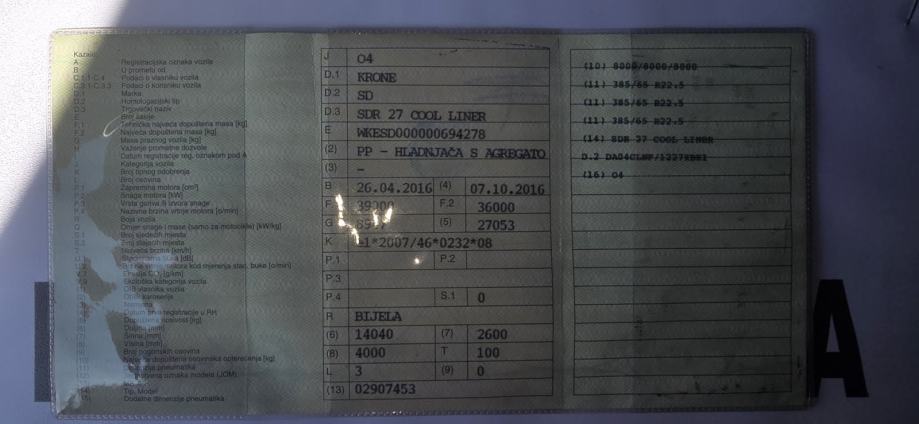 A Registracijska oznaka vozila
B U prometu od
C.1.1-C.4 Podaci o vlasniku vozila
C.3.1-C.3.3 Podaci o korisniku vozila
D.1 Marka
D.2 Homologacijski tip
D.3 Trgovački naziv
E Broj šasije
F.1 Tehnička najveća dopuštena masa [kg]
F.2 Najveća dopuštena masa [kg]
G Masa praznog vozila [kg]
H Važenje prometne dozvole
Datum registracije reg. oznakom pod A
Kategorija vozila
K Broj tipnog odobrenja
L Broj osovina
P.1 Zapremina motora [cm³]
P.2 Snaga motora [kW]
P.3 Vrsta goriva ili izvora snage
P.4 Nazivna brzina vrtnje motora [o/min]
R Boja vozila
Q Omjer snage i mase (samo za motocikle) [kW/kg]
S.1 Broj sjedećih mjesta
S.2 Broj stajaćih mjesta
T brzina [km/h]
Ekološka kategorija vozila
vlasnika vozila
karoserije
Datum prve registracije u RH
nosivost [kg]
[mm]
Širina [mm]
Visina [mm]
Broj pogonskih osovina
Najveća dopuštena osovinska opterećenja [kg]
pneumatika
oznaka modela (JOM)
Tip, Model
Dodatne dimenzije pneumatika
J O4
D.1 KRONE
D.2 SD
D.3 SDR 27 COOL LINER
E WKESD000000694278
(2) PP - HLADNJAČA S AGREGATO
(3) -
B 26.04.2016 (4) 07.10.2016
F.2 36000
G (5) 27053
K 1*2007/46*0232*08
P.1 P.2
P.3
P.4 S.1 0
R BIJELA
(6) 14040 (7) 2600
(8) 4000 T 100
L 3 (9) 0
(13) 02907453
(10) 8000/8000/8000
(11) 385/65 R22.5
(11) 385/65 R22.5
(11) 385/65 R22.5
(14) SDR 27 COOL LINER
D.2
(16) O4
A